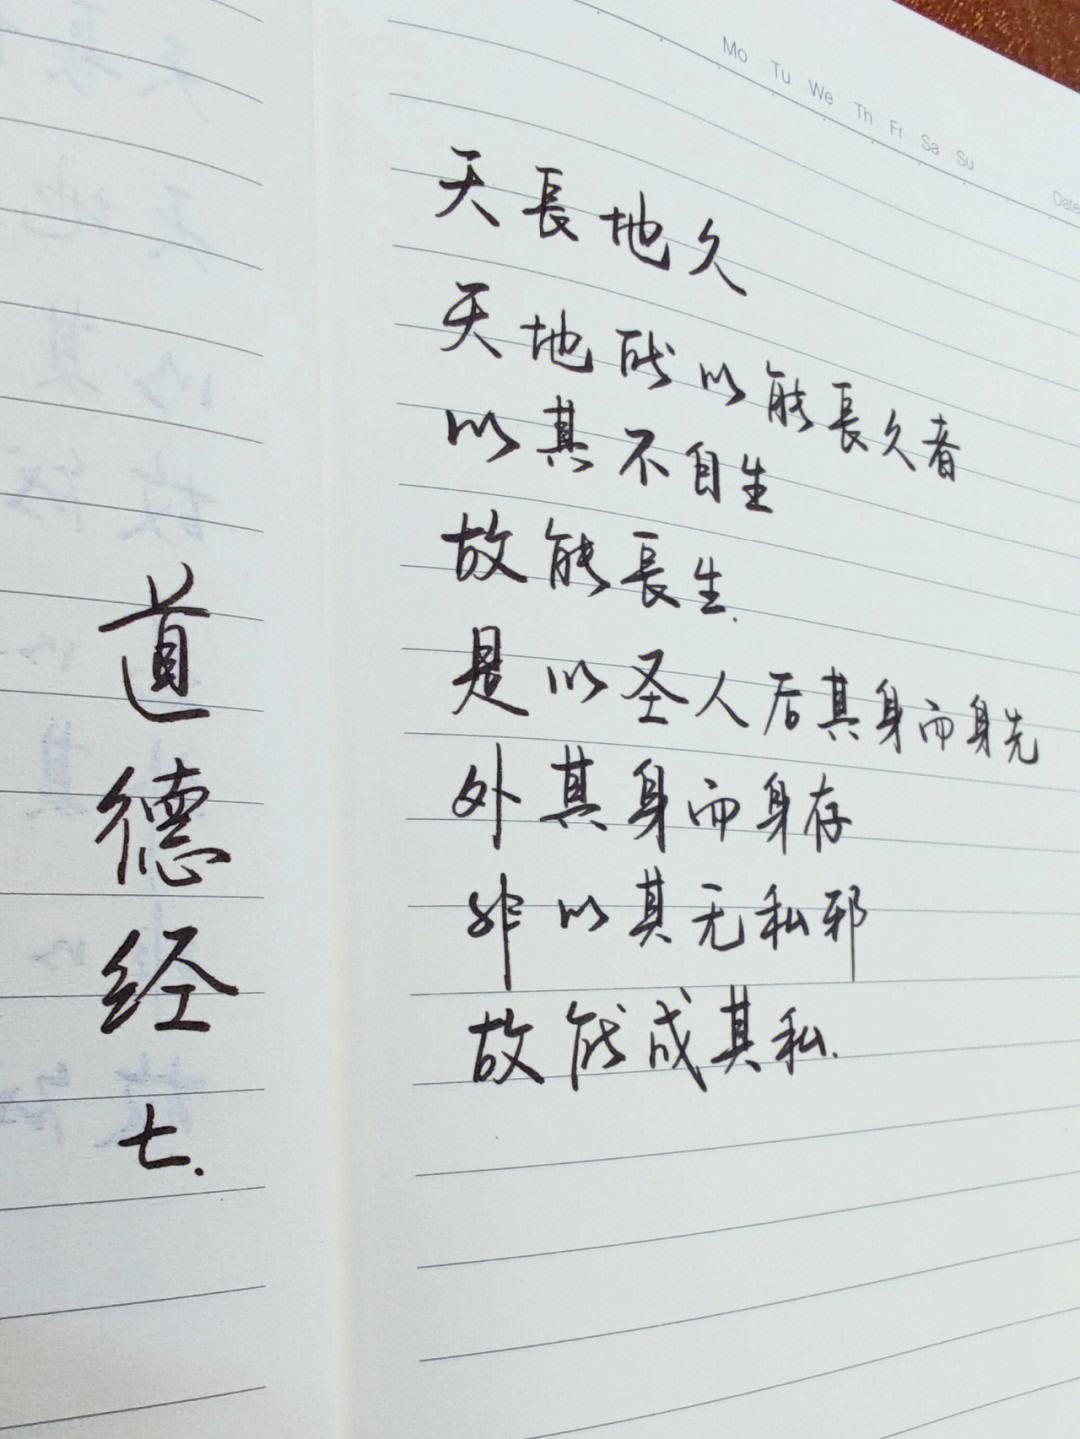 Mo Tu We Th Fr Sa Su
Date
天長地久
天地所以能長久者
以其不自生
故能長生.
是以圣人后其身而身先
外其身而身存
非以其无私邪
故能成其私.
道德经七.